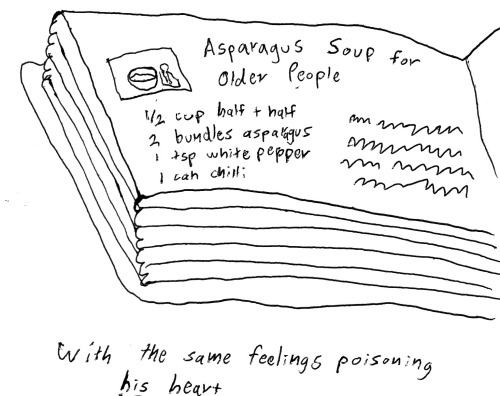 Asparagus Soup for
Older People
1/2 cup half + half
2 bundles asparagus
1 tsp white pepper
1 can chilli
With the same feelings poisoning
his heart